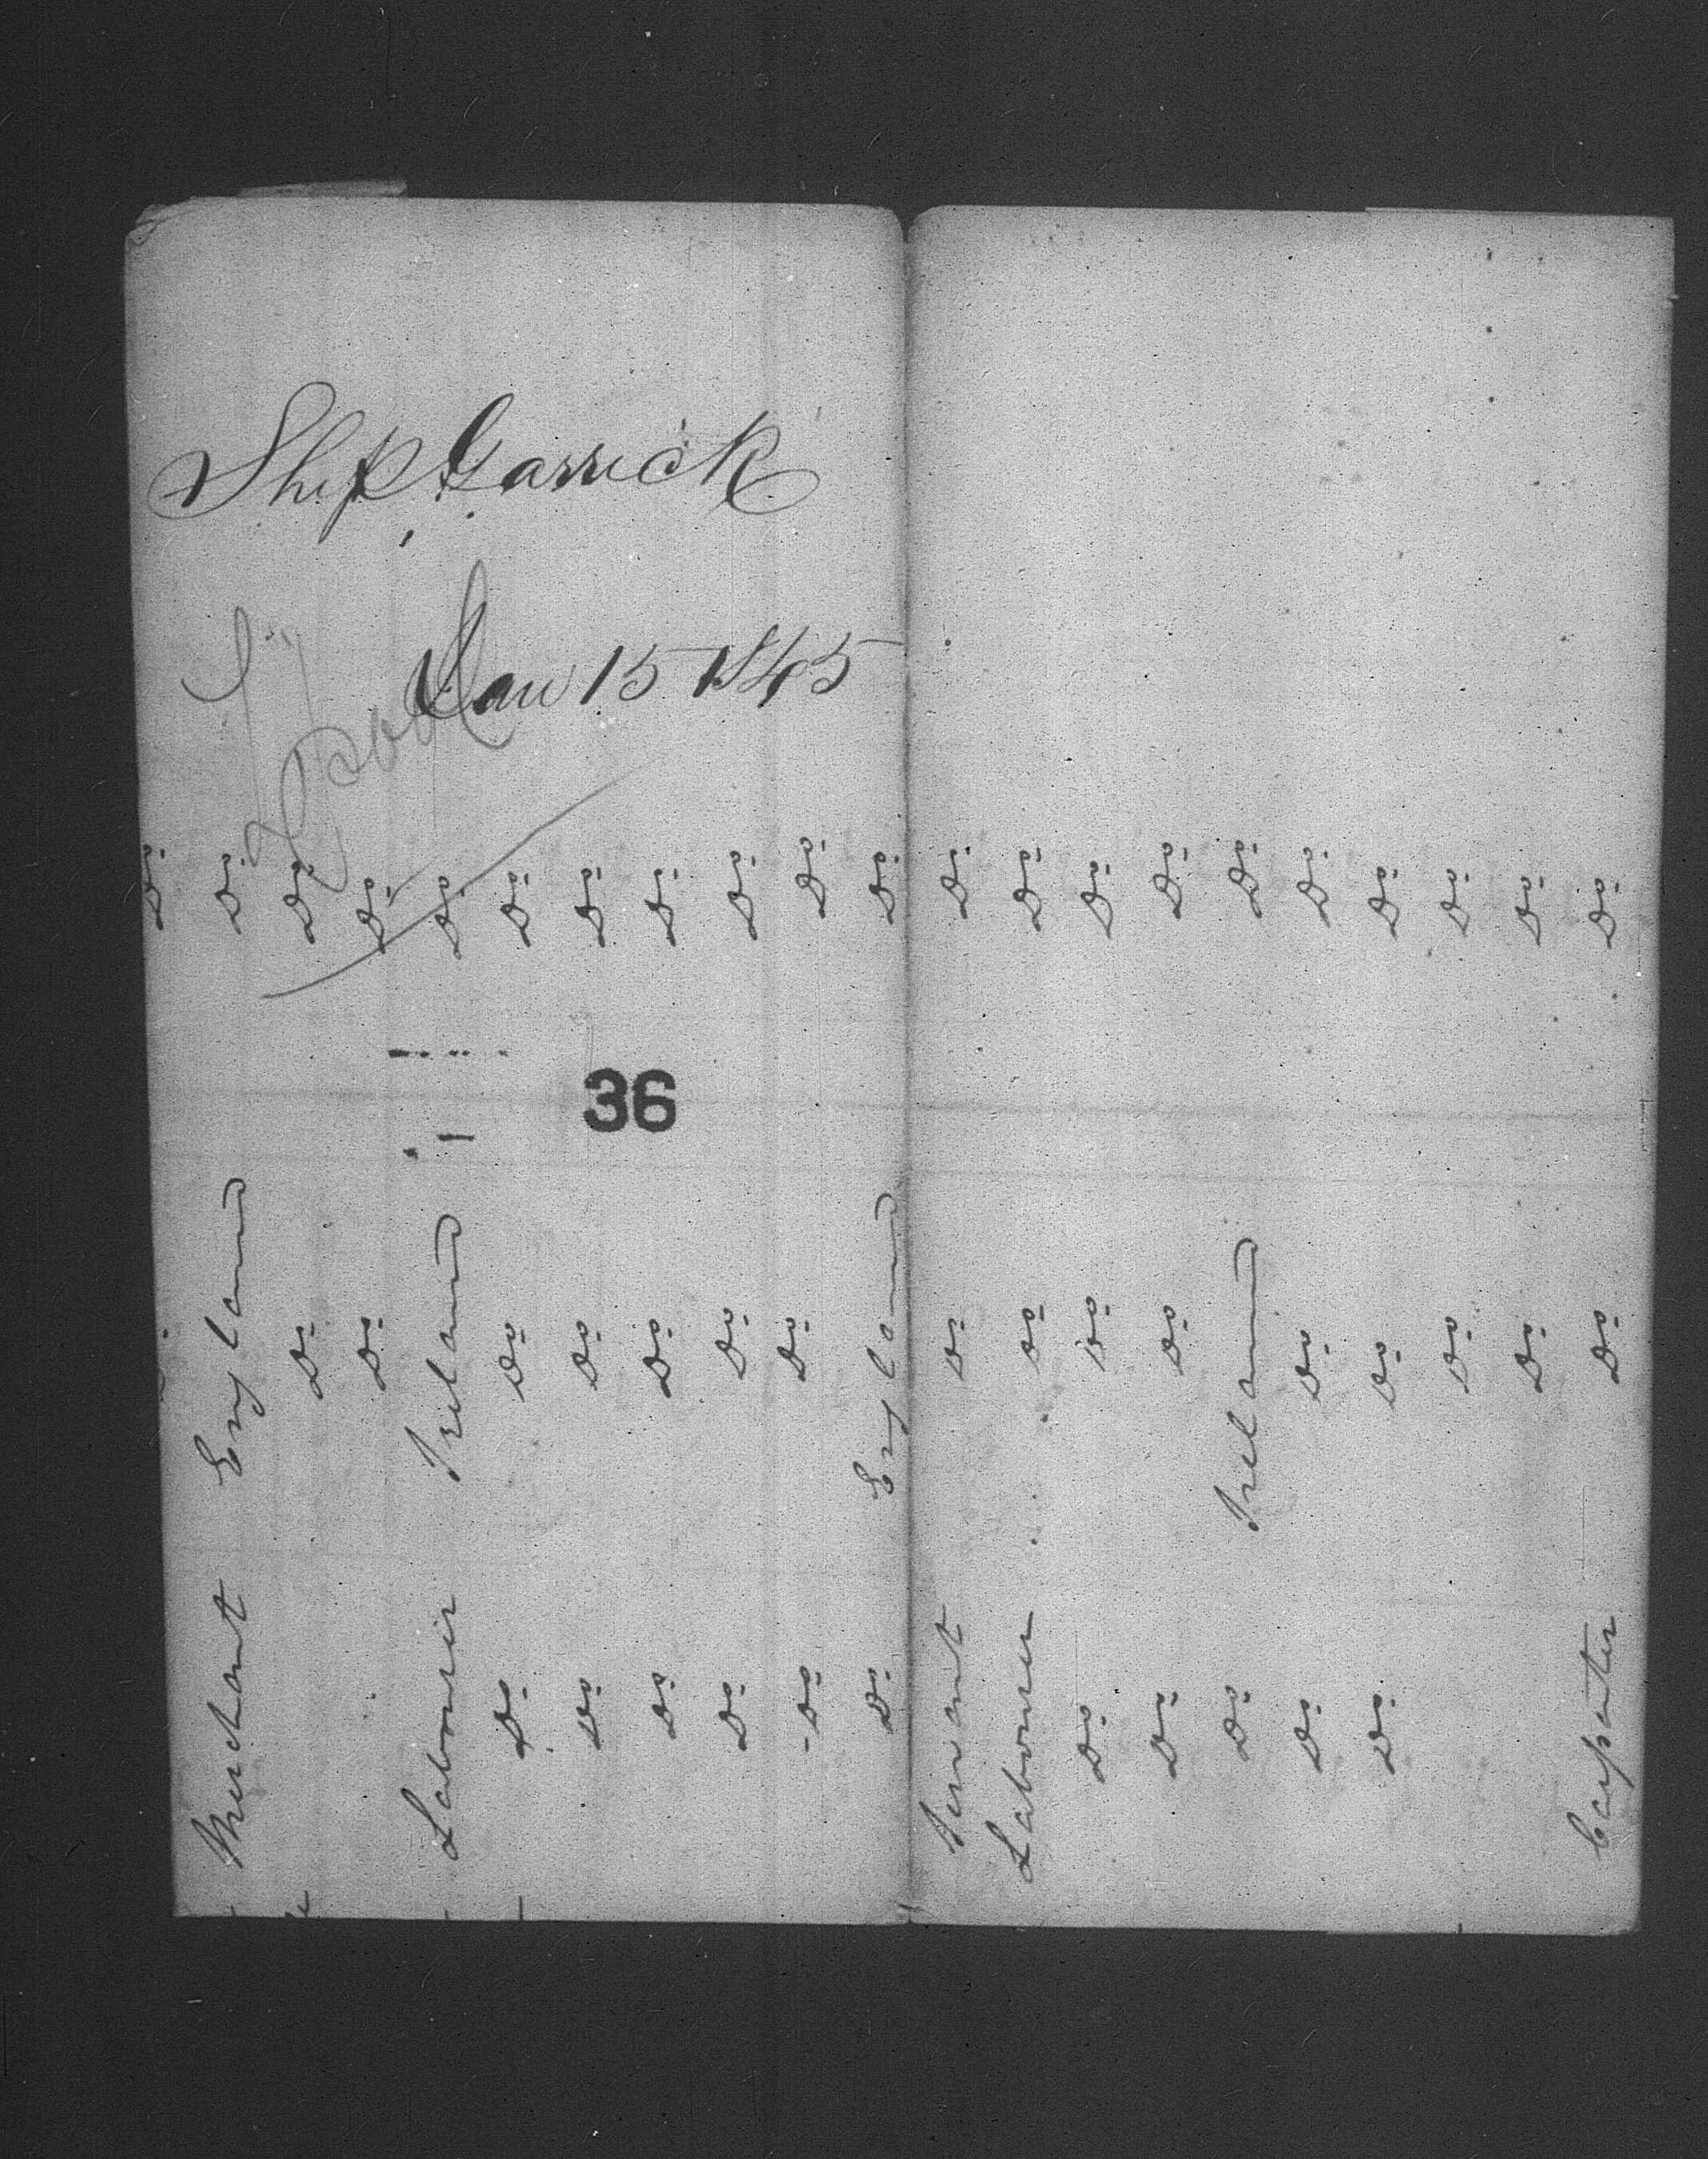 Ship Garrick
Jan 15 1845
L'pool
36
Do
Merchant England Do
Do Do
Do Do
Labourer Ireland Do
Do Do Do
Do Do Do
Do Do Do
Do Do Do
Do Do Do
Do England Do
Servant Do Do
Labourer Do Do
Do Do Do
Do Do Do
Do Ireland Do
Do Do Do
Do Do Do
Do Do
Do Do
Carpenter Do Do